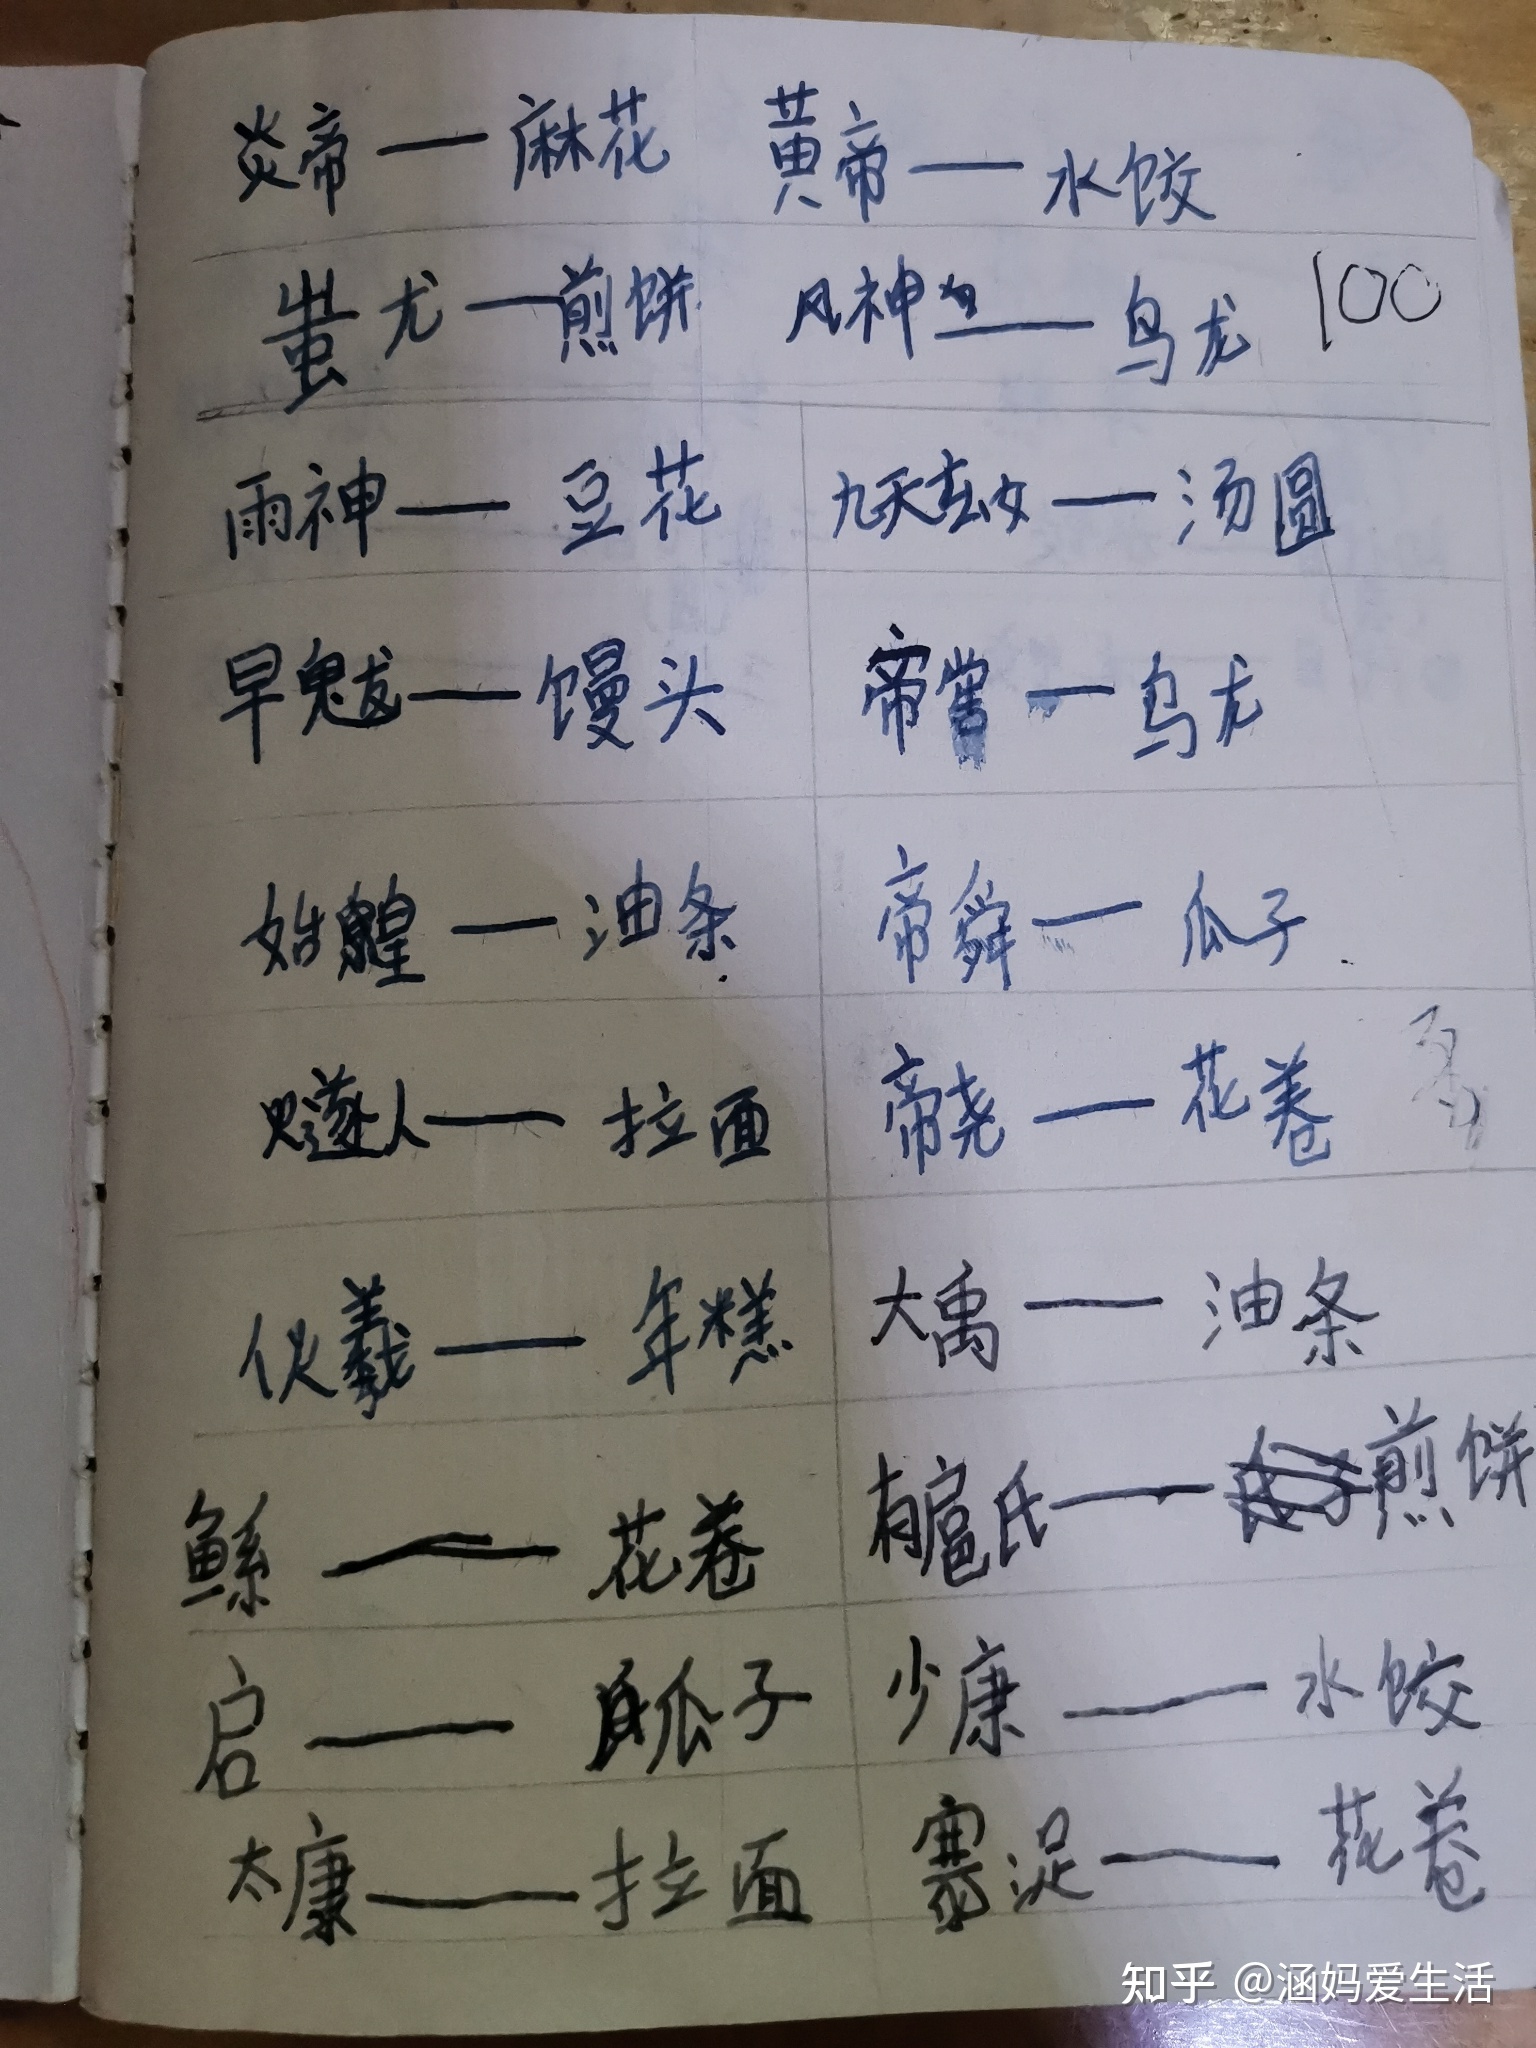 炎帝——麻花 黄帝——水饺
蚩尤——煎饼 风神——乌龙 100
雨神——豆花 九天玄女——汤圆
旱魃——馒头 帝喾——乌龙
始——油条 帝舜——瓜子
燧人——拉面 帝尧——花卷
伏羲——年糕 大禹——油条
鲧——花卷 有扈氏——煎饼
启——瓜子 少康——水饺
太康——拉面 寒浞——花卷
知乎 @涵妈爱生活